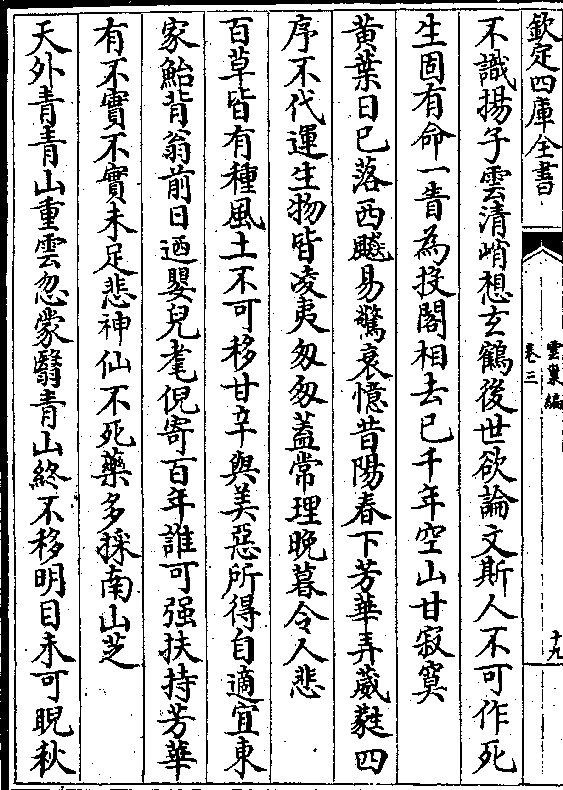 欽定四庫全書
雲巢編
卷三
十九
不識揚子雲清峭想玄鶴後世欲論文斯人不可作死
生固有命一眚為投閣相去已千年空山甘寂寞
黄葉日已落西飈易驚哀憶昔陽春下芳華弄葳蕤四
序不代運生物皆凌夷匆匆蓋常理晚暮令人悲
百草皆有種風土不可移甘辛與美惡所得自適宜東
家鮐背翁前日迺嬰兒耄倪寄百年誰可强扶持芳華
有不實不實未足悲神仙不死藥多採南山芝
天外青青山重雲忽蒙翳青山終不移明目未可睨秋